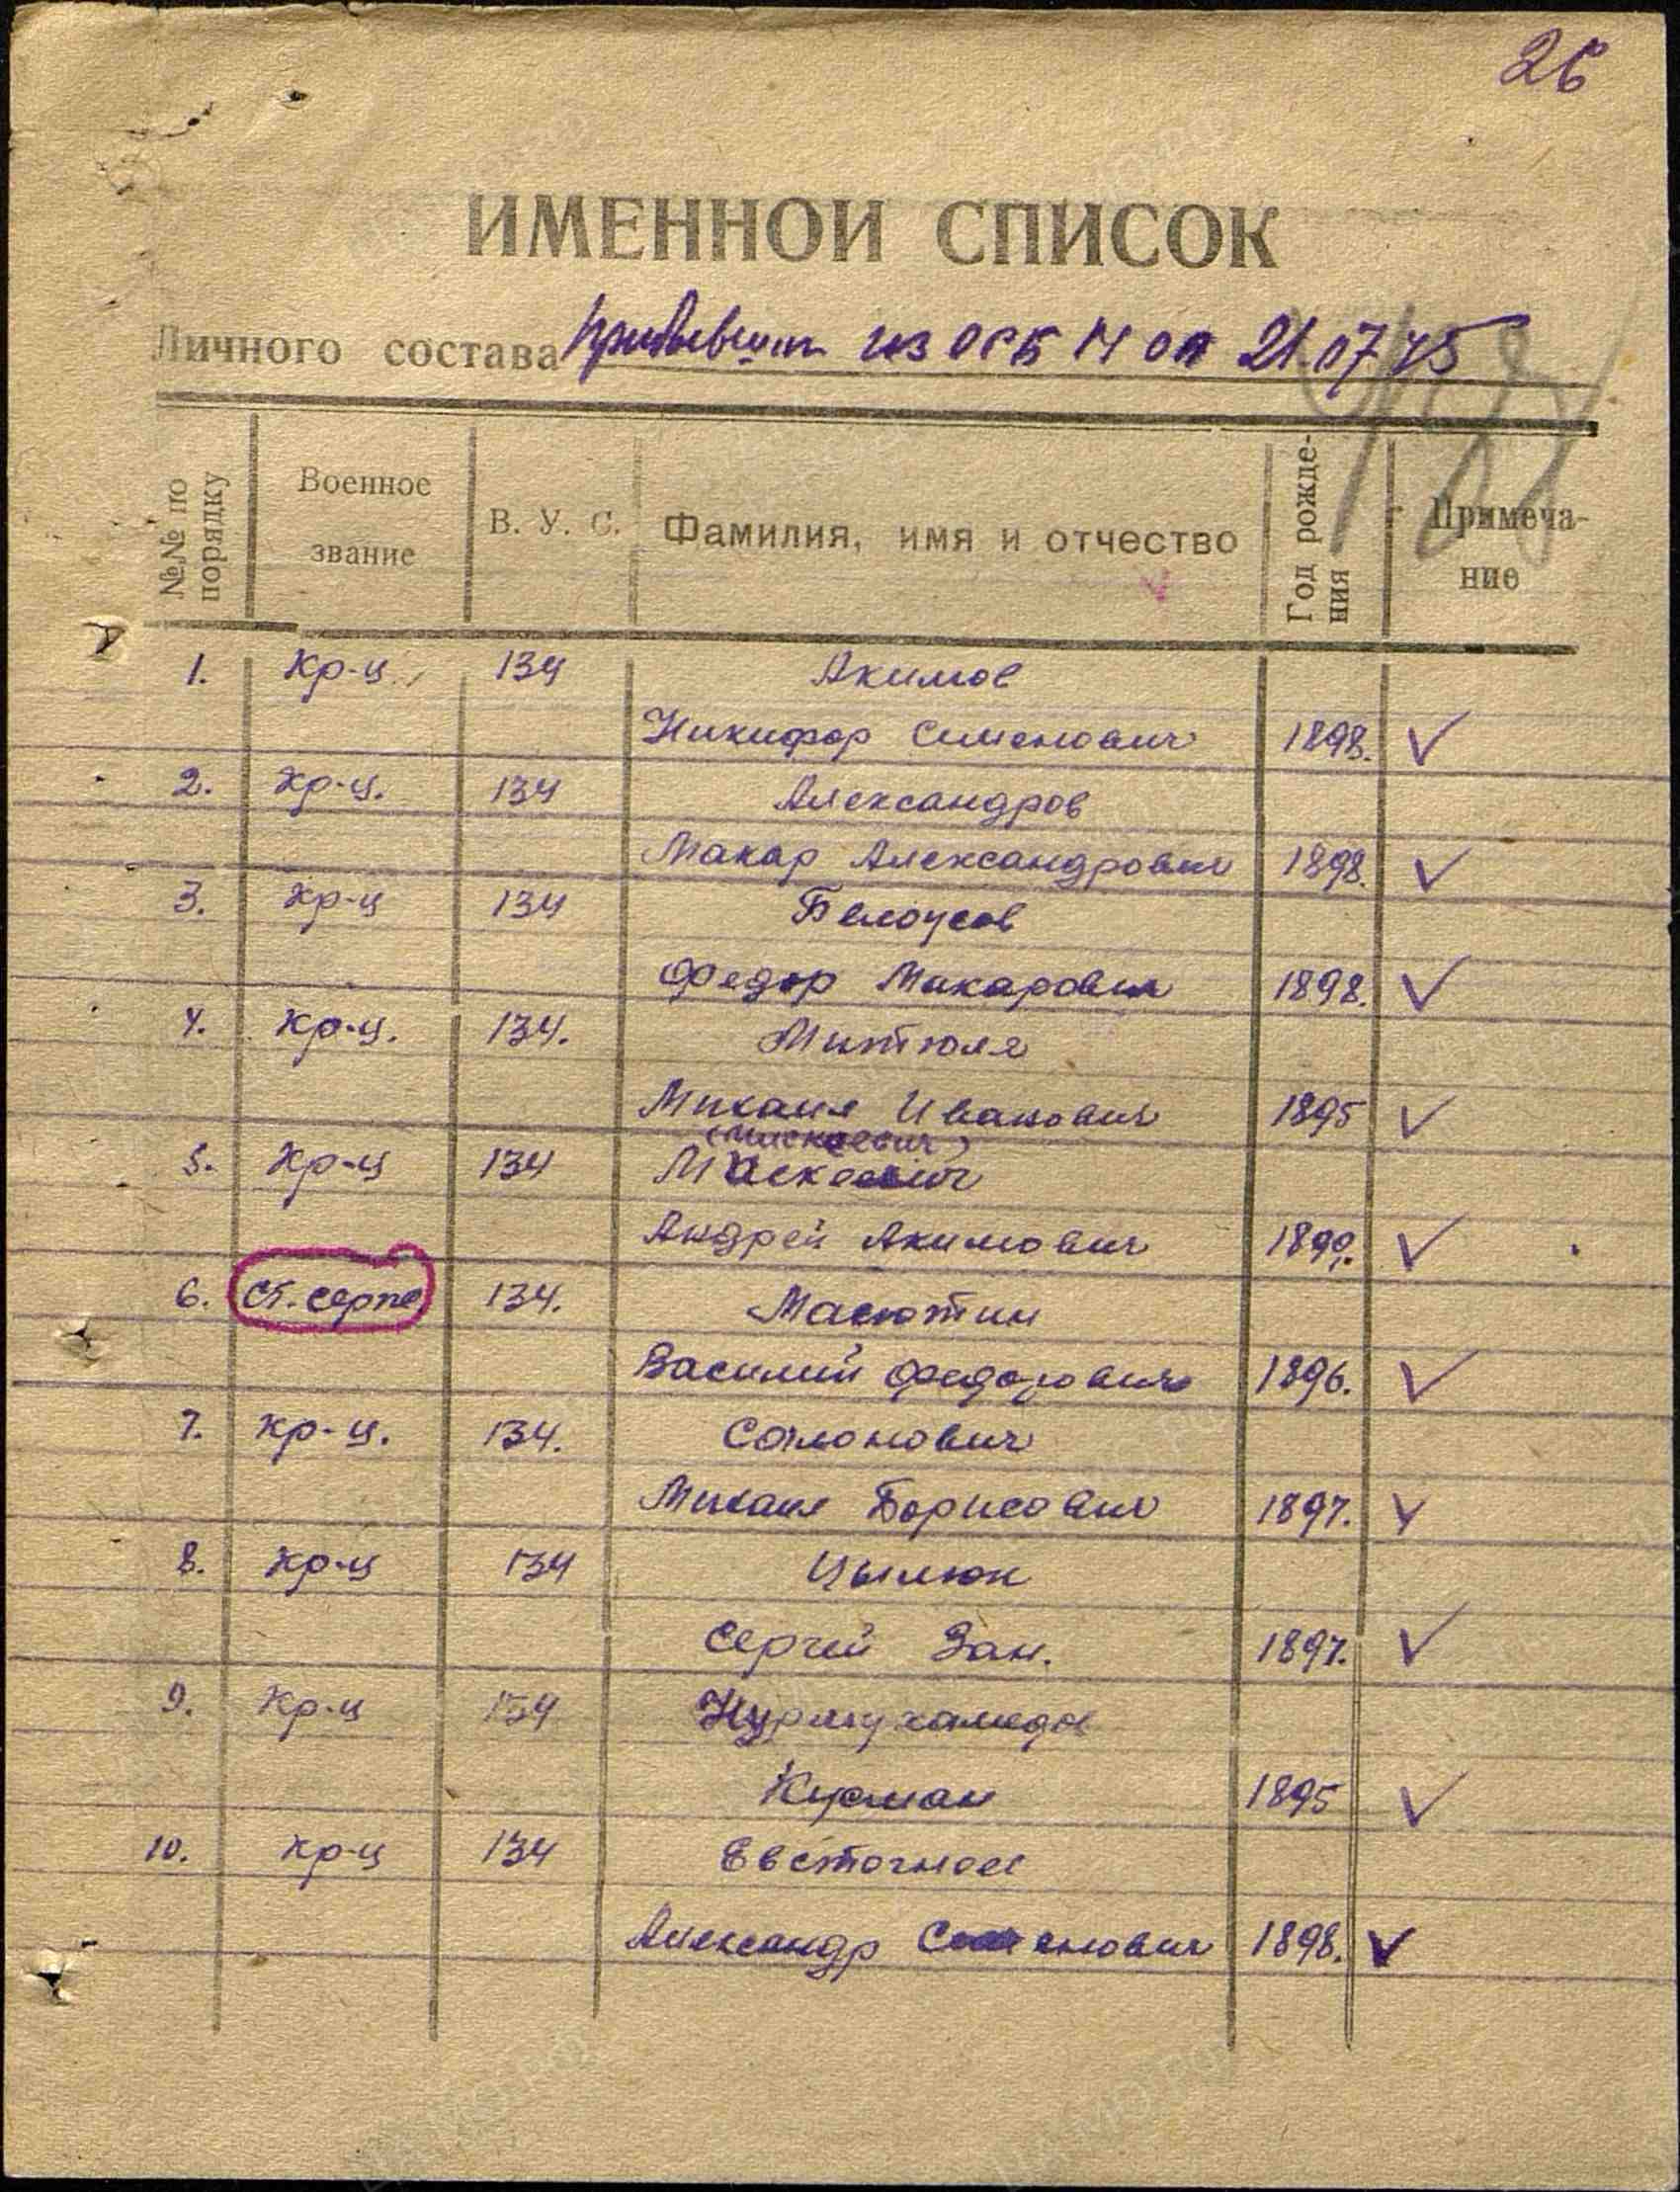 26
ИМЕННОЙ СПИСОК
Личного состава прибывших из ОСБ 21.07.45
№№ по порядку
Военное звание
В. У. С.
Фамилия, имя и отчество
Год рождения
Примечание
1. Кр-ц. 134 Акимов
Никифор Семенович 1898.
2. Кр-ц. 134 Александров
Макар Александрович 1898.
3. Кр-ц 134 Белоусов
Федор Макарович 1898.
4. Кр-ц. 134. Митюля
Михаил Иванович 1895
(Мискевич)
5. Кр-ц 134
Андрей Акимович
6. Ст. серж 134. Масютин
Василий Федорович 1896.
7. Кр-ц. 134. Соломонович
Михаил Борисович 1897.
8. Кр-ц 134 Цылюк
Сергей Зах. 1897.
9. Кр-ц 134 Нурмухамедов
Курман 1895
10. Кр-ц 134
Александр Семенович 1898.